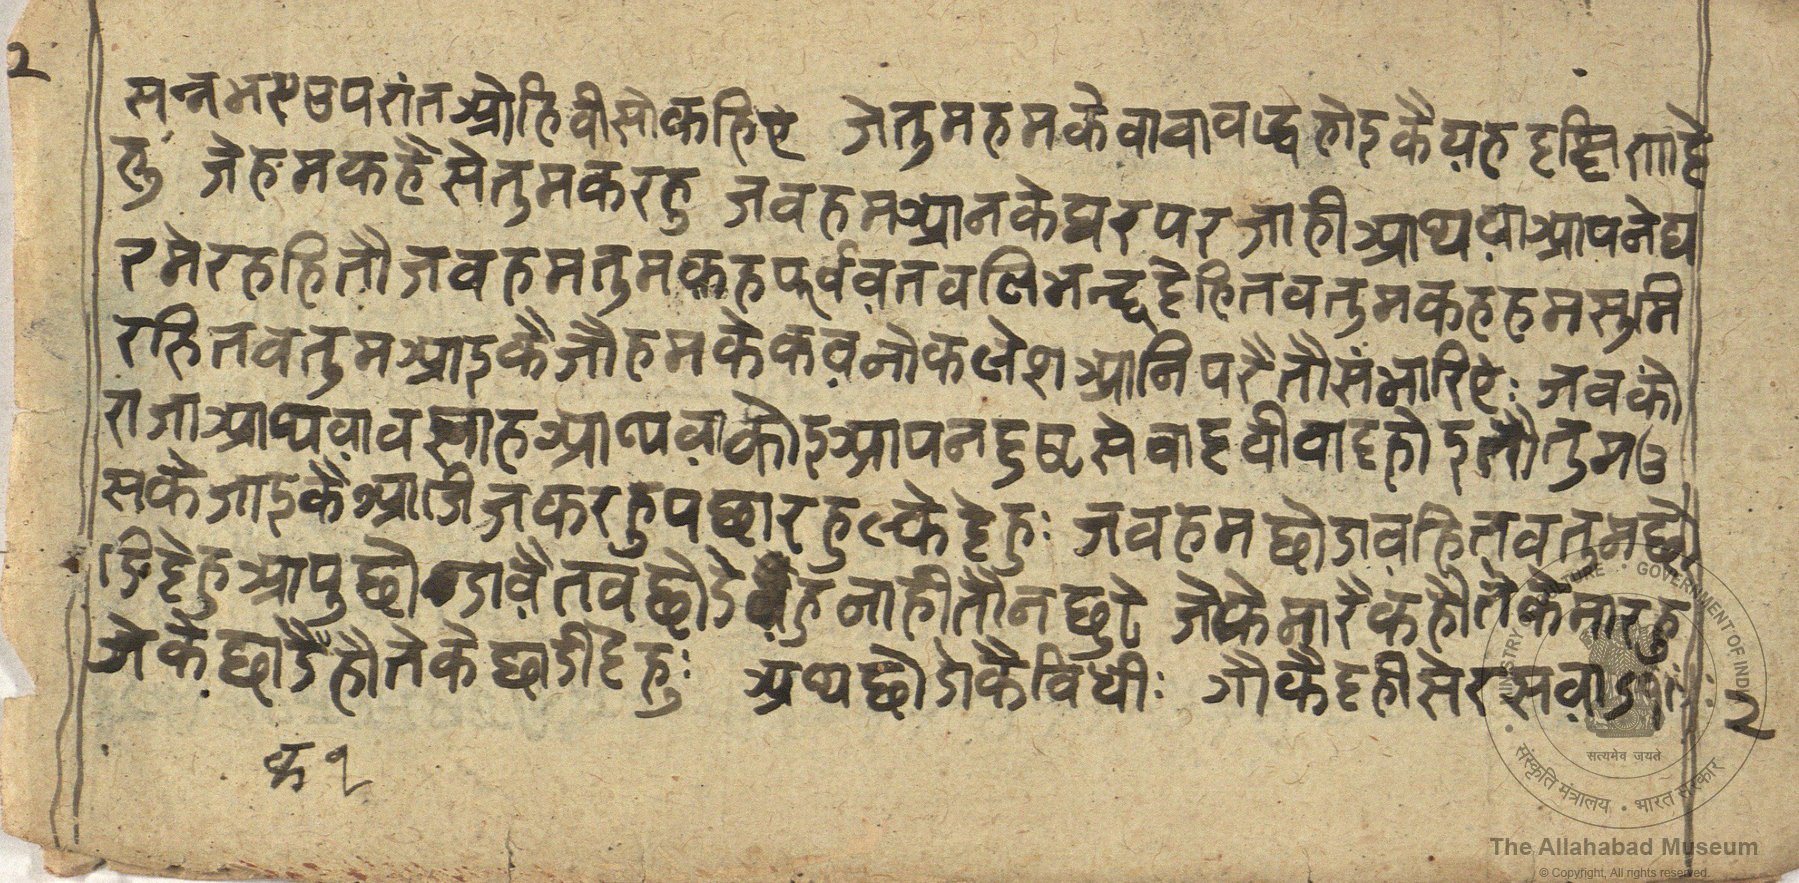 २
सन्न भए उपरांत ओहि वीसो कहिए जे तुम हम के वावा वद्ध होइ कै य़ह दृष्टि
तु जे हम कहै से तुम करहु जव हम आन के घर पर जाही आथवा आपने घ
र मे रहहि तौ जव हम तुम कह पूर्ववत वलि देहि तव तुम कह हम सुमि
रहि तव तुम आइ कै जौ हम के कव़नो कलेश आनि परै तौ संभारिए: जव को
राजा आथव़ा व आथव़ा कोइ आपन दुष्ट से वाद वीवाद होइ तौ तुम उ
स कै जाइ कै करहु पछारहु देहु: जव हम छोडाव़हि तव तुम छो
डि देहु आपु छोडाव़ै तव छोडे नाही तौ न छुटे जेके मारै कहौ तेके मारहु
जेके छाडै कहौ तेके छाडी देहु: अथ छोडेकै विधी: गौ कै दही सेर सव़ा
२
क १
सत्यमेव जयते
MINISTRY OF CULTURE • GOVERNMENT OF INDIA
संस्कृति मंत्रालय • भारत सरकार
The Allahabad Museum
© Copyright, All rights reserved.